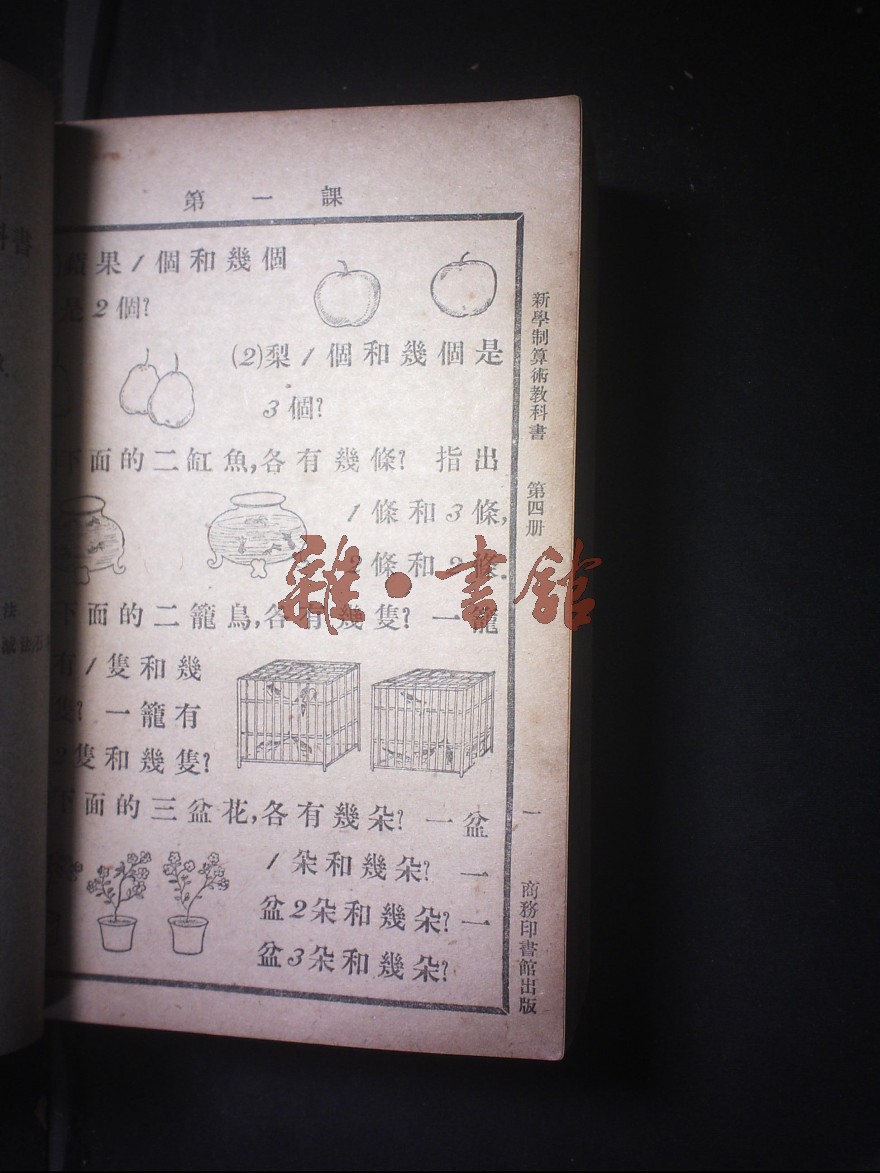 第一課
蘋果1個和幾個
是2個?
(2)梨1個和幾個是
3個?
下面的二缸魚,各有幾條? 指出
1條和3條,
2條和2條.
下面的二籠鳥,各有幾隻? 一籠
有1隻和幾
隻? 一籠有
2隻和幾隻?
下面的三盆花,各有幾朵? 一盆
1朵和幾朵? 一
盆2朵和幾朵? 一
盆3朵和幾朵?
新學制算術教科書 第四册
一
商務印書館出版
雜·書館
科書
法